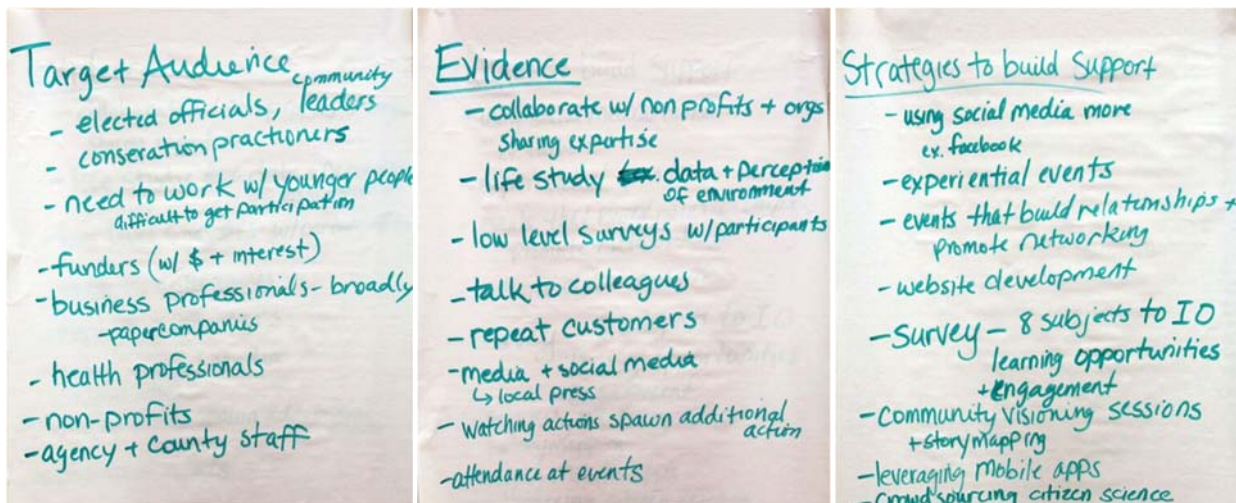 Target Audience
- elected officials, community leaders
- conseration practioners
- need to work w/ younger people
difficult to get participation
- funders (w/ $ + interest)
- business professionals - broadly
- papercompanies
- health professionals
- non-profits
- agency + county staff
Evidence
- collaborate w/ non profits + orgs
sharing expertise
- life study data + perception
of environment
- low level surveys w/ participants
- talk to colleagues
- repeat customers
- media + social media
↳ local press
- watching actions spawn additional
action
- attendance at events
Strategies to build Support
- using social media more
ex. facebook
- experiential events
- events that build relationships +
promote networking
- website development
- Survey - 8 subjects to IO
learning opportunities
+ engagement
- Community visioning sessions
+ story mapping
- leveraging mobile apps
- crowdsourcing citizen science